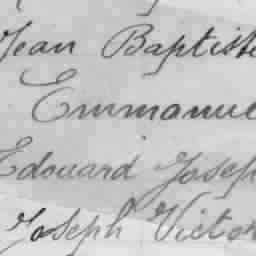 Jean Baptiste
Emmanue
Edouard Josep
Joseph Victor